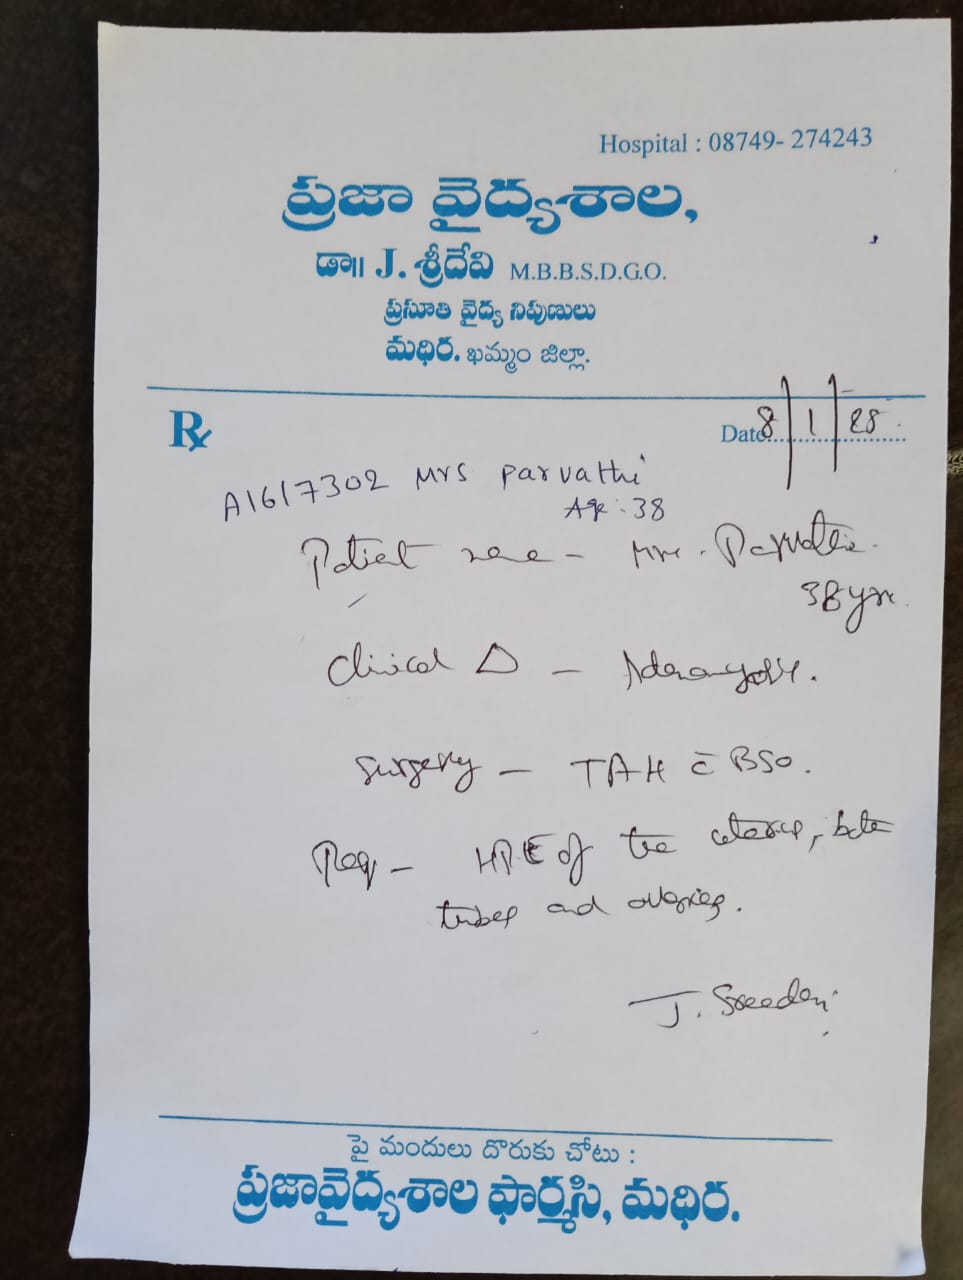 Hospital : 08749- 274243
ప్రజా వైద్యశాల,
డా॥ J. శ్రీదేవి M.B.B.S.D.G.O.
ప్రసూతి వైద్య నిపుణులు
మధిర. ఖమ్మం జిల్లా.
Rx
Date 8/1/
A1617302 Mrs Parvathi
Age : 38
Patient name - Mrs. Parvathi.
38 yrs.
Clinical Δ -
Surgery - TAH c̄ BSO.
Req - HPE of the uterus, both
tubes and ovaries.
J. Sreedevi
పై మందులు దొరుకు చోటు :
ప్రజావైద్యశాల ఫార్మసి, మధిర.